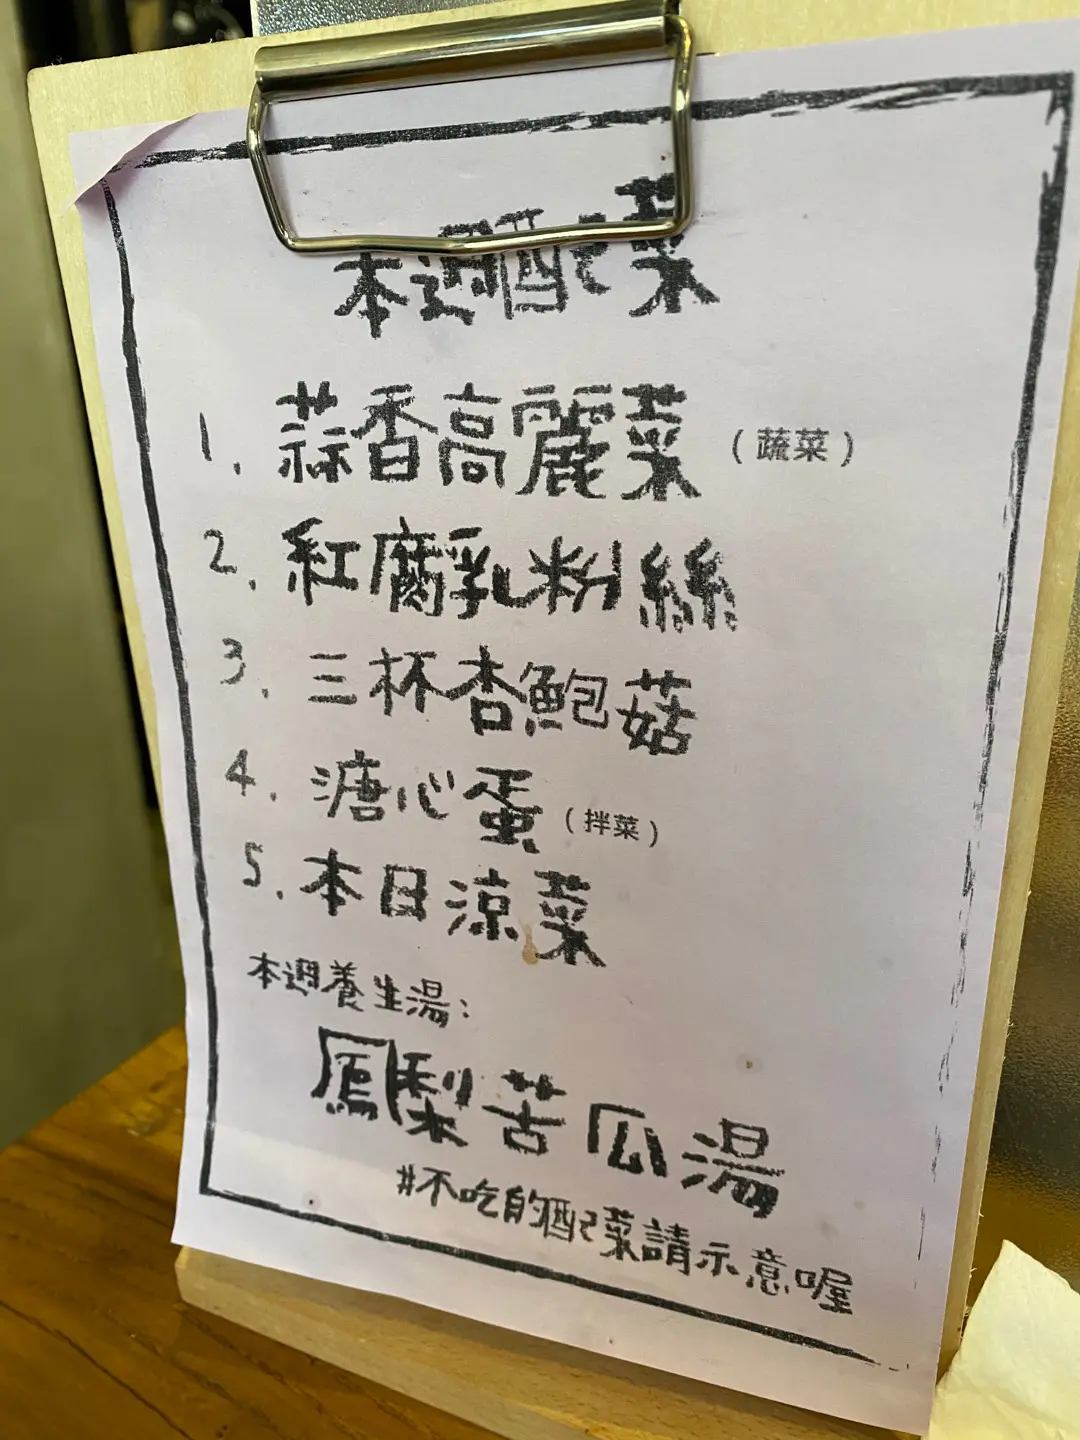 本週配菜
1. 蒜香高麗菜（蔬菜）
2. 紅腐乳粉絲
3. 三杯杏鮑菇
4. 溏心蛋（拌菜）
5. 本日涼菜
本週養生湯：
鳳梨苦瓜湯
#不吃的配菜請示意喔